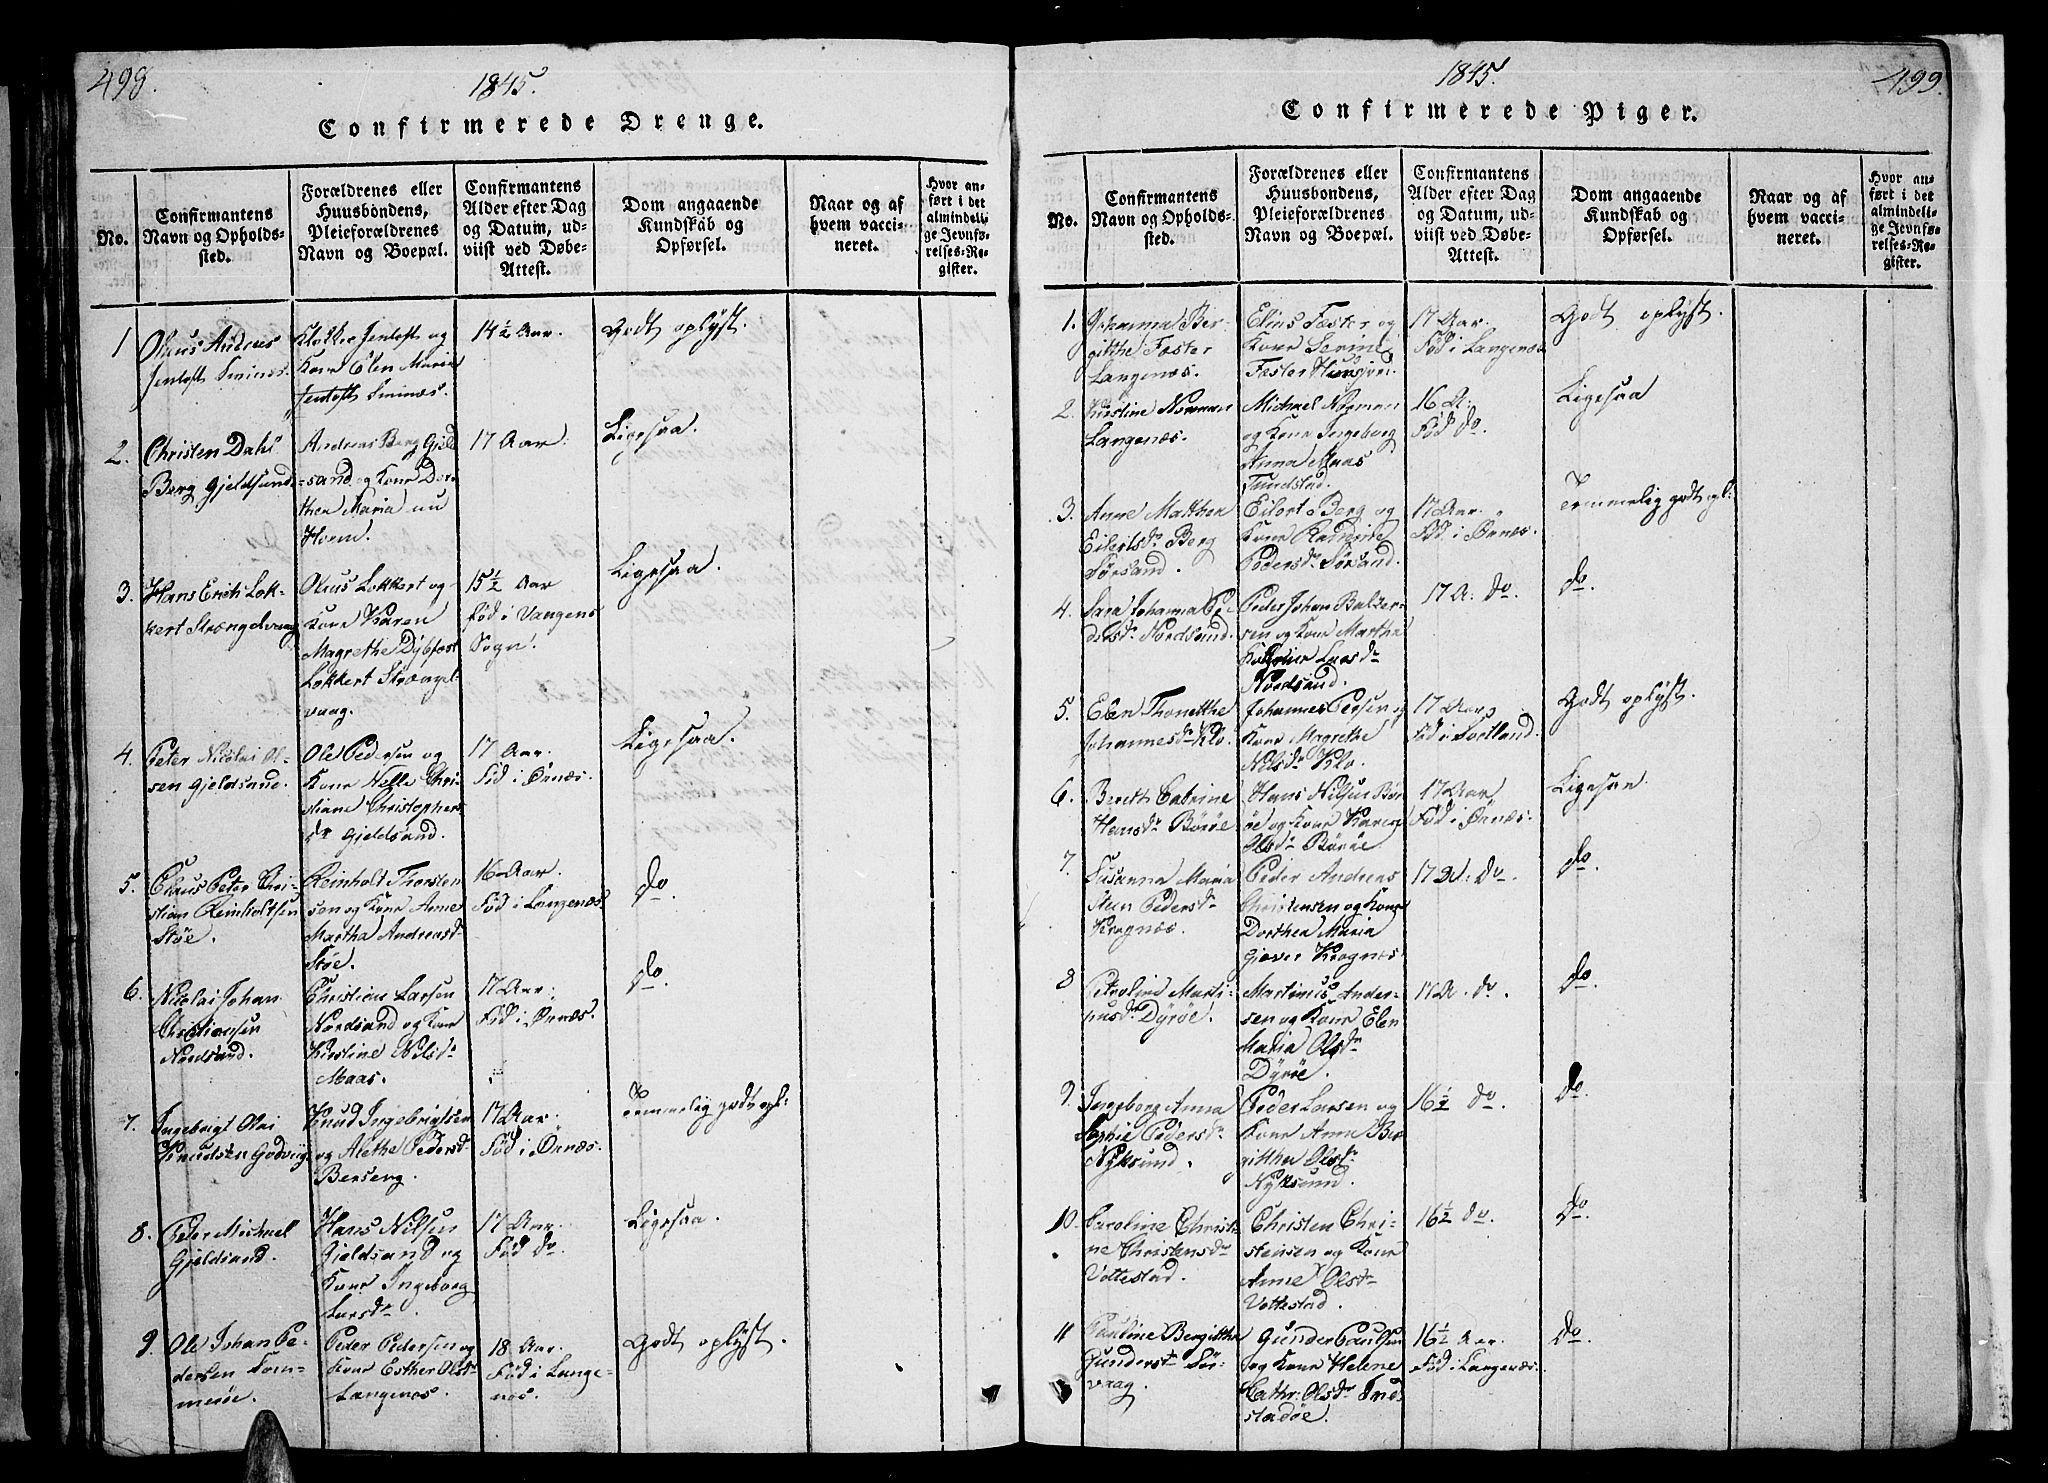 498.
1845.
Confirmerede Drenge.
No.
Confirmantens
Navn og Opholds-
sted.
Forældrenes eller
Huusbondens,
Pleieforældrenes
Navn og Boepæl.
Confirmantens
Alder efter Dag
og Datum, ud-
viist ved Døbe-
Attest.
Dom angaaende
Kundskab og
Opførsel.
Naar og af
hvem vacci-
neret.
Hvor an-
ført i det
almindeli-
ge Jevnfø-
relses-Re-
gister.
1
Olaus Andreas
Jentoft Smines.
Klokker Jentoft og
Kone Elen Maria
Jentoft Smines.
14 1/2 Aar.
Godt oplyst.
2.
Christen Dahl
Berg Gjeldsund.
Andreas Berg Gjeld
-sand og Kone Dor-
thea Maria nu
17 Aar.
Ligesaa.
3.
Hans Erich Lok-
kert Strængelvaag
Olaus Lokkert og
Kone Karen
Magrethe Dybfest
Lokkert Strængel-
vaag.
15 1/2 Aar
Fød i Vangens
Sogn.
Ligesaa.
4.
Peter Nicolai Ol-
sen Gjeldsand.
Ole Pedersen og
Kone Nelle Chri-
stiane Christophers
dr Gjeldsand.
17 Aar.
Fød i Ørnæs.
Ligesaa.
5.
Claus Peter Chri-
stian Reinholtsen
Støe.
Reinholt Thorsten
sen og Kone Anne
Martha Andreasd
Støe.
16 Aar.
Fød i Langenæs
do.
6.
Nicolai Johan
Christiansen
Nordsand.
Christian Larsen
Nordsand og Kone
Kirstine Nilsdr
Maas.
17 Aar.
Fød i Ørnæs.
do.
7.
Ingebrigt Olai
Knudsen Godviig
Knud Ingebrigtsen
og Alethe Pedersd
Berseng.
17 Aar.
Fød i Ørnæs.
Temmelig godt opl:
8.
Peter Michael
Gjeldsand.
Hans Nilsen
Gjeldsand og
Kone Ingeborg
Larsdr.
17 Aar.
Fød do
Ligesaa.
9.
Ole Johan Pe-
dersen Tom-
merøe.
Peder Pedersen og
Kone Esther Olsdr
Langenæs.
18 Aar.
Fød i Lange-
næs.
Godt oplyst.
1845.
499.
Confirmerede Piger.
No.
Confirmantens
Navn og Opholds-
sted.
Forældrenes eller
Huusbondens,
Pleieforældrenes
Navn og Boepæl.
Confirmantens
Alder efter Dag
og Datum, ud-
viist ved Døbe-
Attest.
Dom angaaende
Kundskab og
Opførsel.
Naar og af
hvem vacci-
neret.
Hvor an-
ført i det
almindeli-
ge Jevnfø-
relses-Re-
gister.
1.
Johanna Ber-
gitthe Fæster
Langenæs.
Elias Fæster og
Kone Serine
Fæster
17 Aar.
Fød i Langenæs
Godt oplyst.
2.
Kirstine Norman
Langenæs.
Michael Norman
og Kone Ingeborg
Anna Maas
Tunstad.
16 A:
Fød do.
Ligesaa
3.
Anne Matthea
Eilertsdr Berg
Sørsand.
Eilert Berg og
Kone
Pedersdr Sørsand.
17 Aar.
Fød i Ørnæs.
Temmelig godt opl:
4.
Sara Johanna Pe-
dersdr Nordsand.
Peder Johan Balzer-
sen og Kone Martha
Larsdr
Nordsand.
17 A: do.
do.
5.
Elen Thonetthe
Johannesdr Klo.
Johannes Pedsen og
Kone Magrethe
Nilsdr Klo.
17 Aar
Fød i Fortland.
Godt oplyst.
6.
Bereth Catrine
Hansdr Børøe
Hans Nilsen Bør-
øe og Kone Karen
Olsdr Børøe
17 Aar
Fød i Ørnæs.
Ligesaa.
7.
Susanna Maria
Steen Pedersdr
Kragnæs.
Peder Andreas
Christensen og Kone
Dorthea Maria
Giæver Kragnæs
17 A: do.
do.
8
Petroline Marti-
nusdr Dyrøe.
Martinus Ander-
sen og Kone Elen
Maria Olsdr
Dyrøe.
17 A. do.
do.
9.
Ingeborg Anna
Sophie Pedersdr
Nyksund.
Peder Larsen og
Kone Anne Ber-
gitthe Olsdr
Nyksund.
16 1/2 do.
do.
10.
Caroline Christi-
ne Christensdr
Vottestad.
Christen Chri-
stensen og Kone
Anne Olsdr
Vottestad.
16 1/2 do.
do.
11
Pauline Bergitthe
Gundersdr Sør-
vaag.
Gunder Paulsen
og Kone Helene
Cathr: Olsdr Tine-
stadøe.
16 1/2 Aar
Fød i Langenæs.
do.